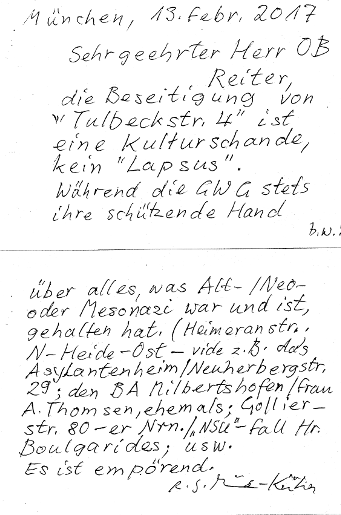 München, 13. Febr. 2017
Sehr geehrter Herr OB
Reiter,
die Beseitigung von
"Tulbeckstr. 4" ist
eine Kulturschande,
kein "Lapsus".
Während die GWG stets
ihre schützende Hand
b.w.
über alles, was Alt-/Neo-
oder Mesonazi war und ist,
gehalten hat. (Heimeranstr.,
N-Heide-Ost – vide z.B. das
Asylantenheim/Neuherbergstr.
29; den BA Milbertshofen/Frau
A. Thomsen, ehemals; Gollier-
str. 80-er Nrn./"NSU"-Fall Hr.
Boulgarides; usw.
Es ist empörend.
R. S.